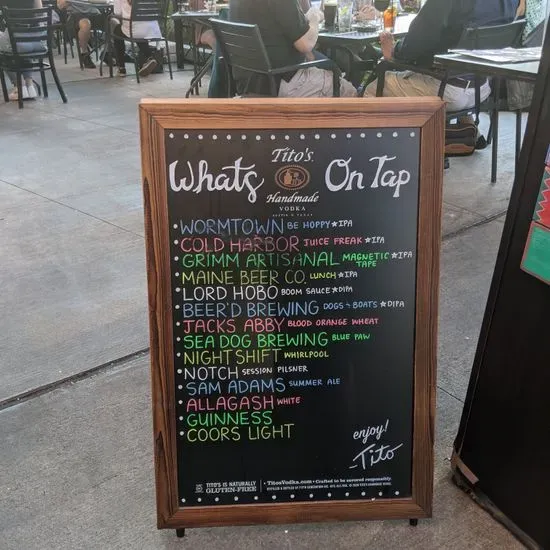 Tito's
Whats On Tap
Handmade
VODKA
AUSTIN ★ TEXAS
• WORMTOWN BE HOPPY ★ IPA
• COLD HARBOR JUICE FREAK ★ IPA
• GRIMM ARTISANAL MAGNETIC TAPE ★ IPA
• MAINE BEER CO. LUNCH ★ IPA
• LORD HOBO BOOM SAUCE ★ DIPA
• BEER'D BREWING DOGS + BOATS ★ DIPA
• JACKS ABBY BLOOD ORANGE WHEAT
• SEA DOG BREWING BLUE PAW
• NIGHT SHIFT WHIRLPOOL
• NOTCH SESSION PILSNER
• SAM ADAMS SUMMER ALE
• ALLAGASH WHITE
• GUINNESS
• COORS LIGHT
enjoy!
-Tito
TITO'S IS NATURALLY
GLUTEN-FREE
• TitosVodka.com • Crafted to be savored responsibly.